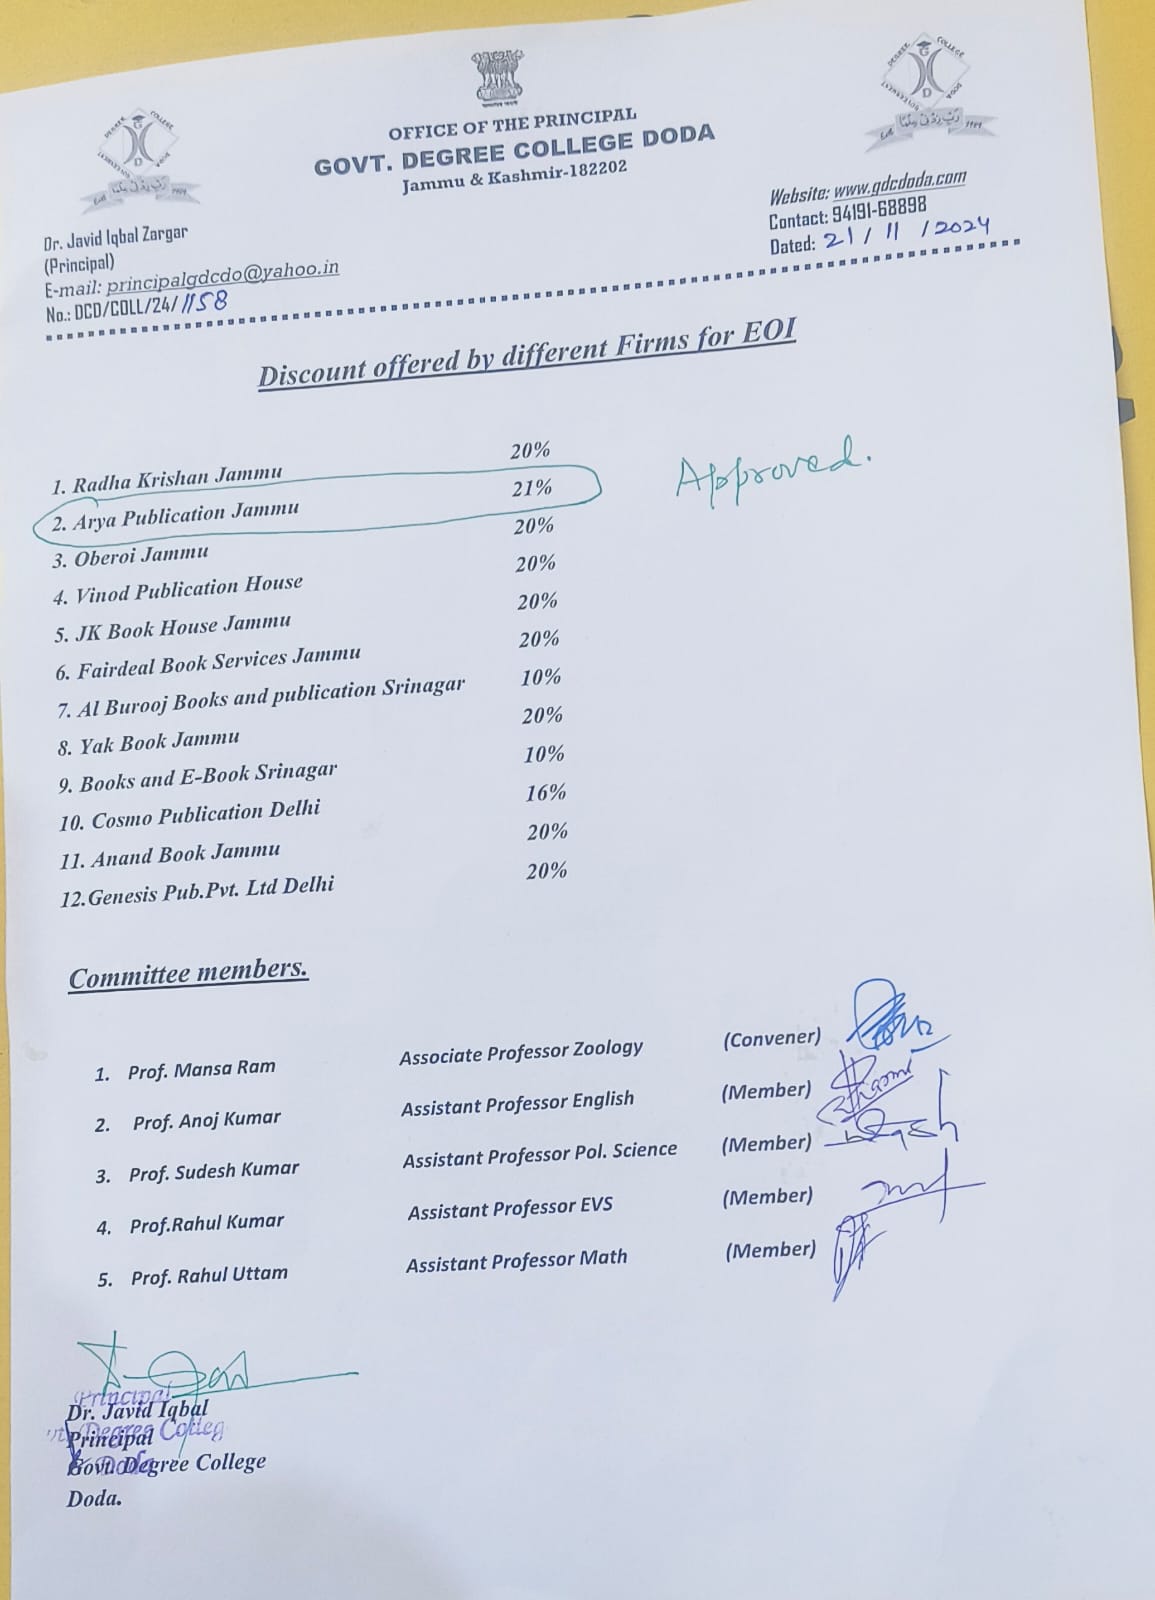 OFFICE OF THE PRINCIPAL
GOVT. DEGREE COLLEGE DODA
Jammu & Kashmir-182202
Dr. Javid Iqbal Zargar
(Principal)
E-mail: principalgdcdo@yahoo.in
No.: DCD/COLL/24/1158
Website: www.gdcdoda.com
Contact: 94191-68898
Dated: 21/11/2024
Discount offered by different Firms for EOI
1. Radha Krishan Jammu 20%
2. Arya Publication Jammu 21%
3. Oberoi Jammu 20%
4. Vinod Publication House 20%
5. JK Book House Jammu 20%
6. Fairdeal Book Services Jammu 20%
7. Al Burooj Books and publication Srinagar 10%
8. Yak Book Jammu 20%
9. Books and E-Book Srinagar 10%
10. Cosmo Publication Delhi 16%
11. Anand Book Jammu 20%
12.Genesis Pub.Pvt. Ltd Delhi 20%
Approved.
Committee members.
1. Prof. Mansa Ram Associate Professor Zoology (Convener)
2. Prof. Anoj Kumar Assistant Professor English (Member)
3. Prof. Sudesh Kumar Assistant Professor Pol. Science (Member)
4. Prof.Rahul Kumar Assistant Professor EVS (Member)
5. Prof. Rahul Uttam Assistant Professor Math (Member)
Principal
Degree College
Doda
Dr. Javid Iqbal
Principal
Govt. Degree College
Doda.